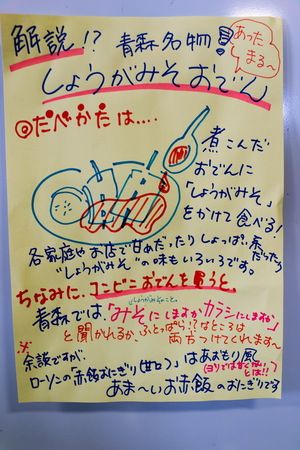 解説!? 青森名物!!
あった
まる〜
しょうがみそおでん
◎たべかたは....
煮こんだ
おでんに
「しょうがみそ」
をかけて食べる!
各家庭やお店で甘めだったりしょっぱい系だったり
"しょうがみそ"の味もいろいろです。
ちなみに、コンビニおでんを買うと、
青森では、「みそにしますかカラシにしますか」
と聞かれるか、ふとっぱら!?なところは
両方つけてくれます〜
※
余談ですが、
ローソンの「赤飯おにぎり(甘口)」はあおもり風
とは!!
あま〜いお赤飯のおにぎりです